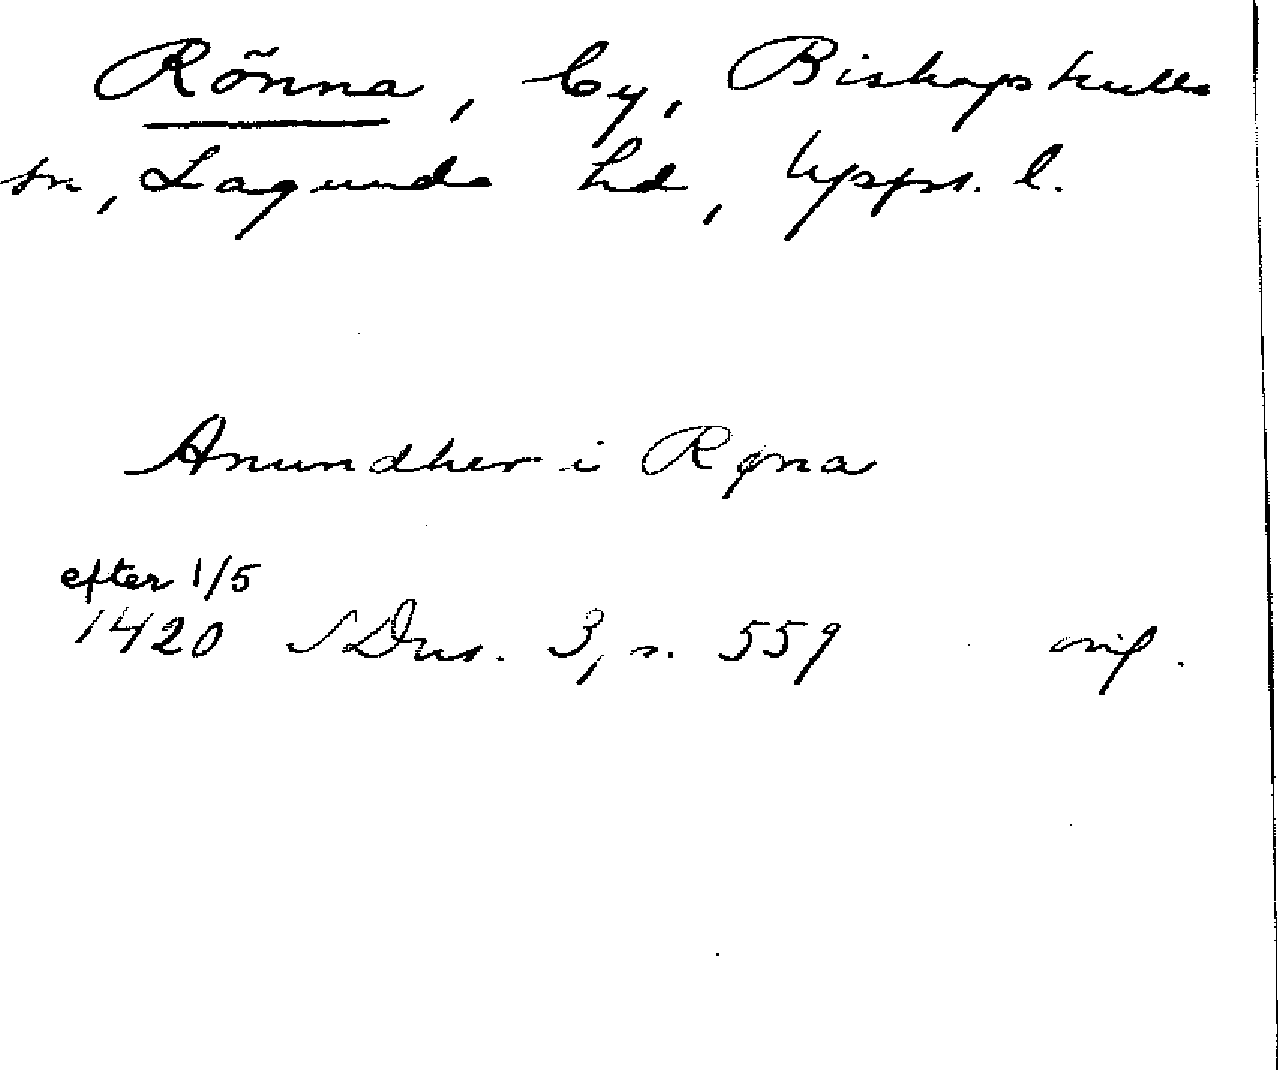 Rönna, by, Biskopskulla
sn, Lagunda hd, Upps. l.
Anundher i Røna
efter 1/5
1420 SDns. 3, s. 559 orig.